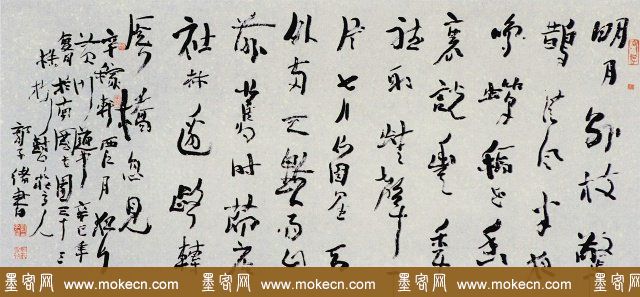 明月别枝驚
鵲清風半夜
鳴蟬稻花香
裏說豐年
聽取蛙聲一
片七八个星天
外两三點雨山
前舊時茆店
社林邊路轉
溪橋忽見
辛稼軒西江月夜行
黄沙道中辛巳年
於南
人
郭子緒書
墨客网 www.mokecn.com 墨客网 www.mokecn.com 墨客网 www.mokecn.com